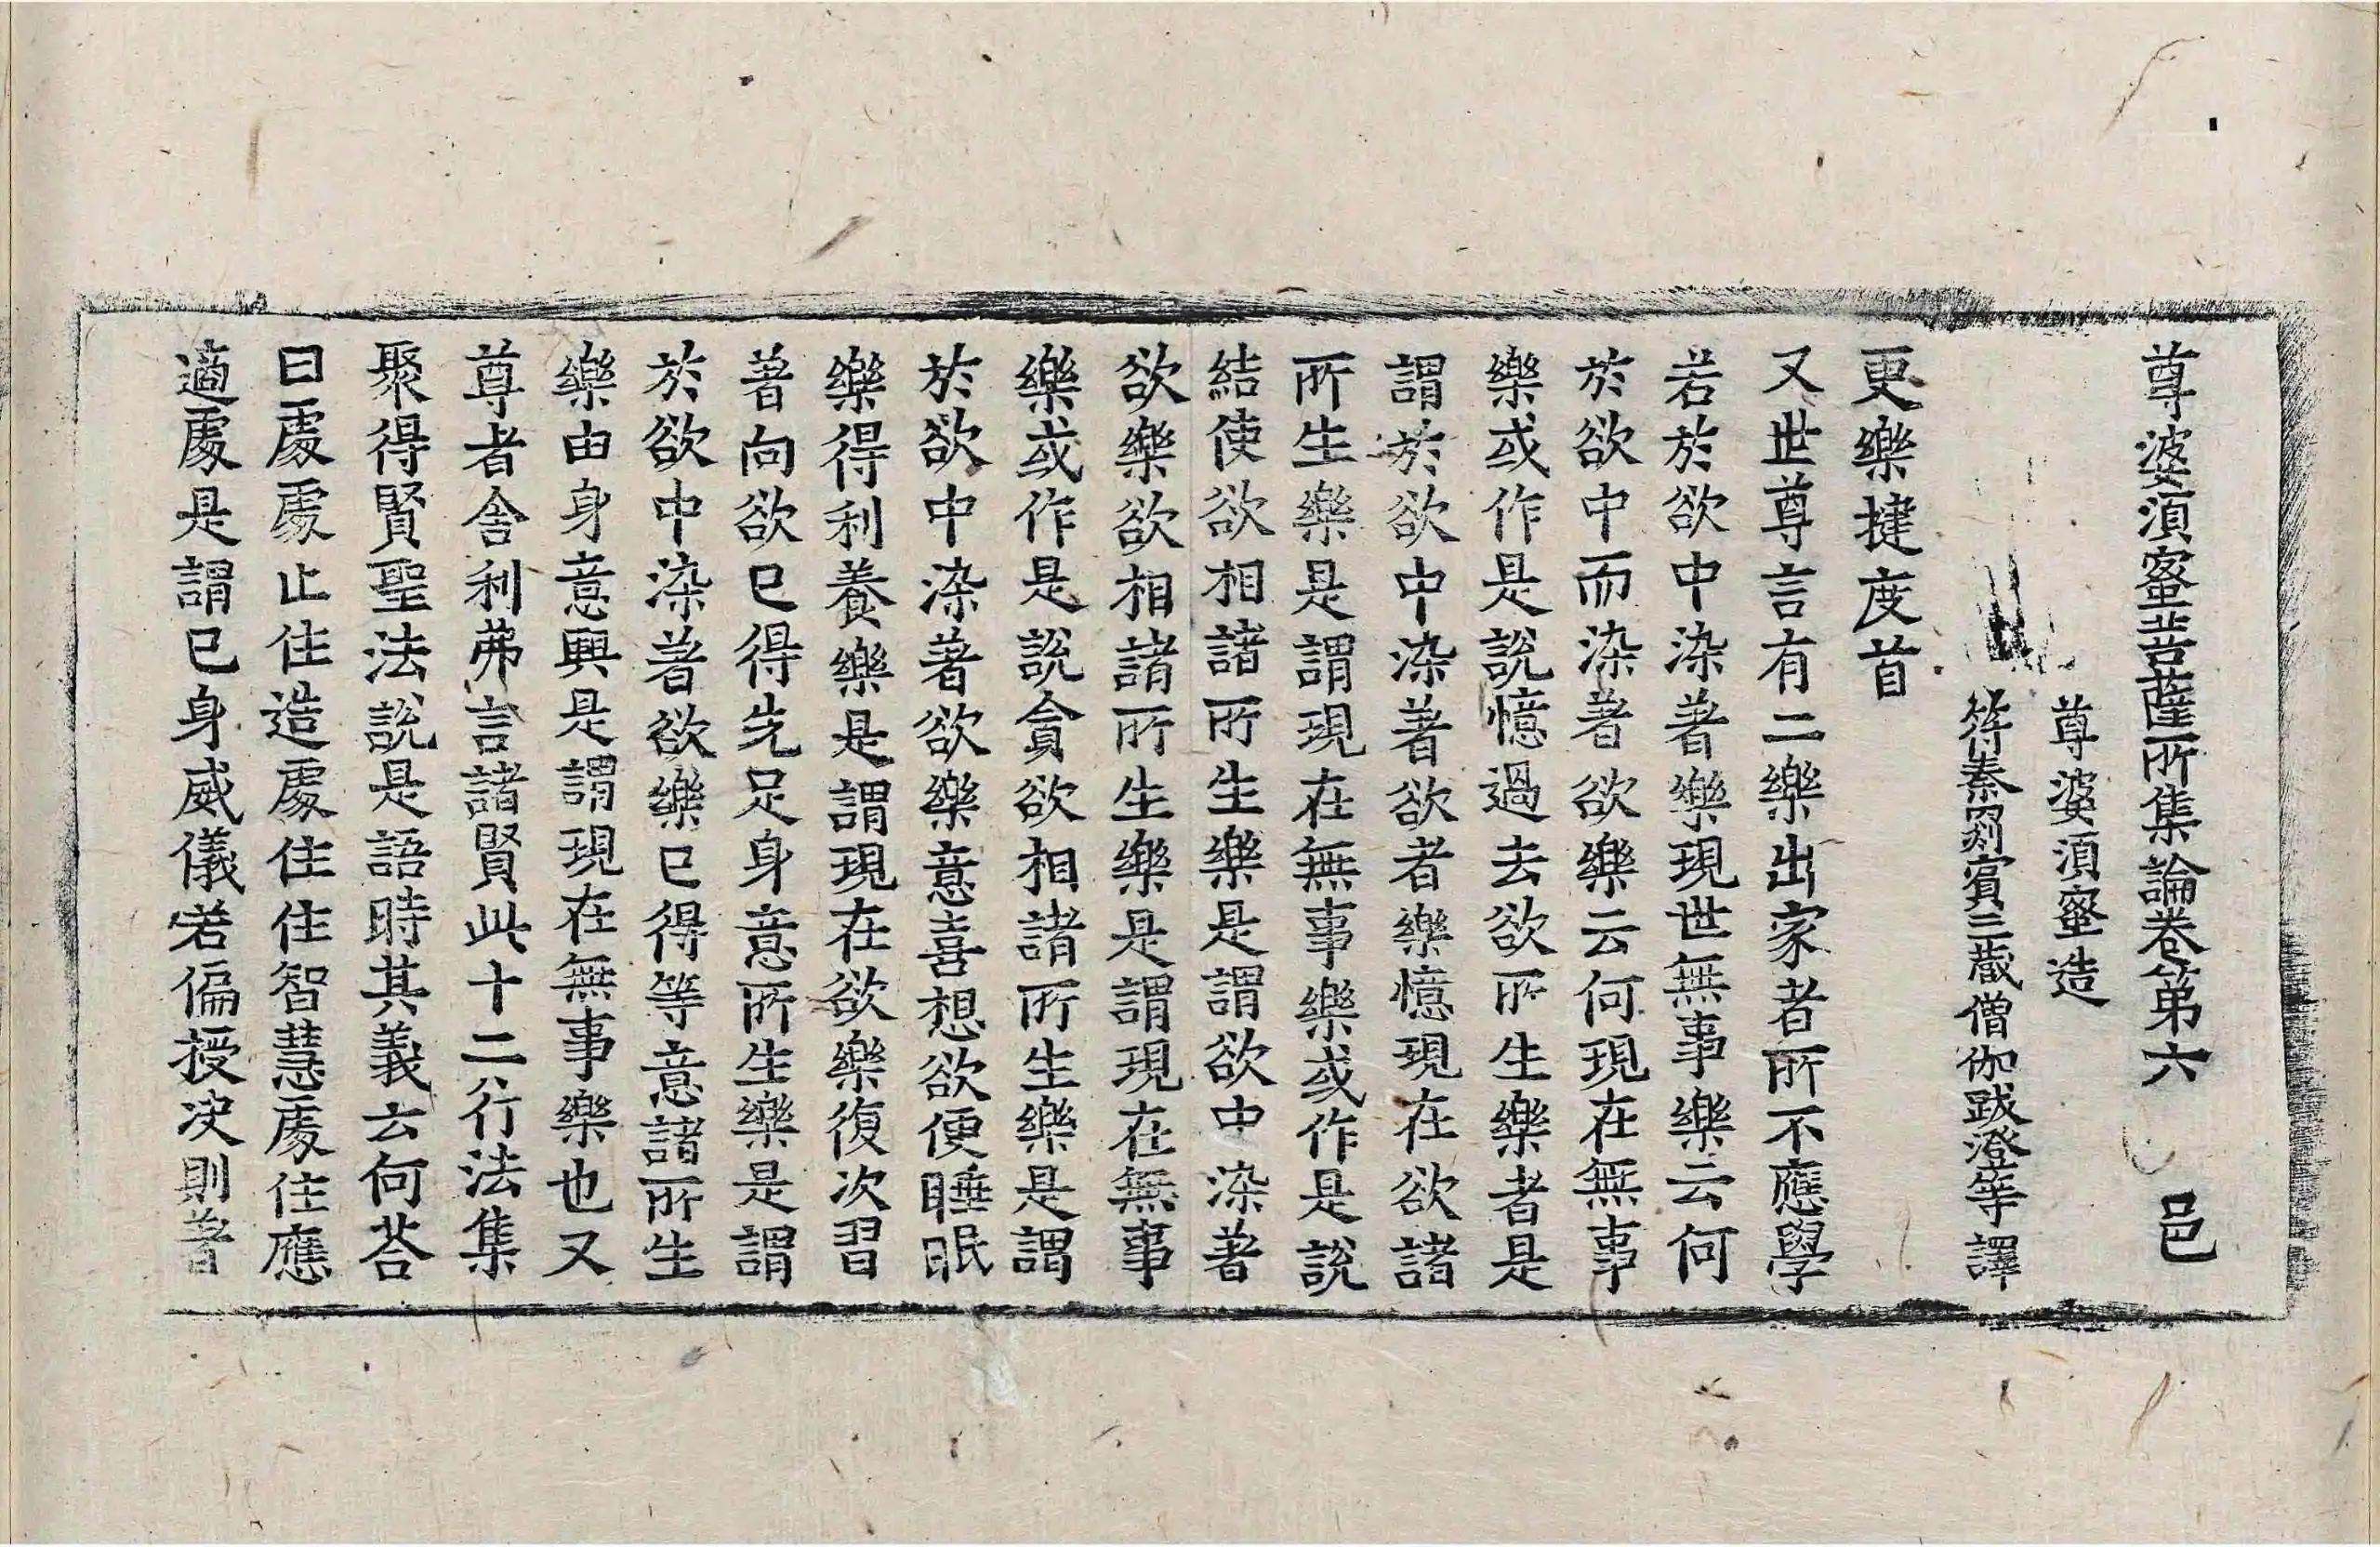 尊婆湏蜜菩薩所集論卷第六 邑
尊婆湏蜜造
符秦罽賓三蔵僧伽跋澄等譯
更樂揵度首
又世尊言有二樂出家者所不應學
若於欲中染著樂現世無事樂云何
於欲中而染著欲樂云何現在無事
樂或作是說憶過去欲所生樂者是
謂於欲中染著欲者樂憶現在欲諸
所生樂是謂現在無事樂或作是說
結使欲相諸所生樂是謂欲中染著
欲樂欲相諸所生樂是謂現在無事
樂或作是說貪欲相諸所生樂是謂
於欲中染著欲樂意喜想欲便睡眠
樂得利養樂是謂現在欲樂復次習
著向欲已得先足身意所生樂是謂
於欲中染著欲樂已得等意諸所生
樂由身意興是謂現在無事樂也又
尊者舍利弗言諸賢此十二行法集
聚得賢聖法說是語時其義云何荅
曰處處止住造處住住智慧處住應
適處是謂已身威儀若偏授决則著